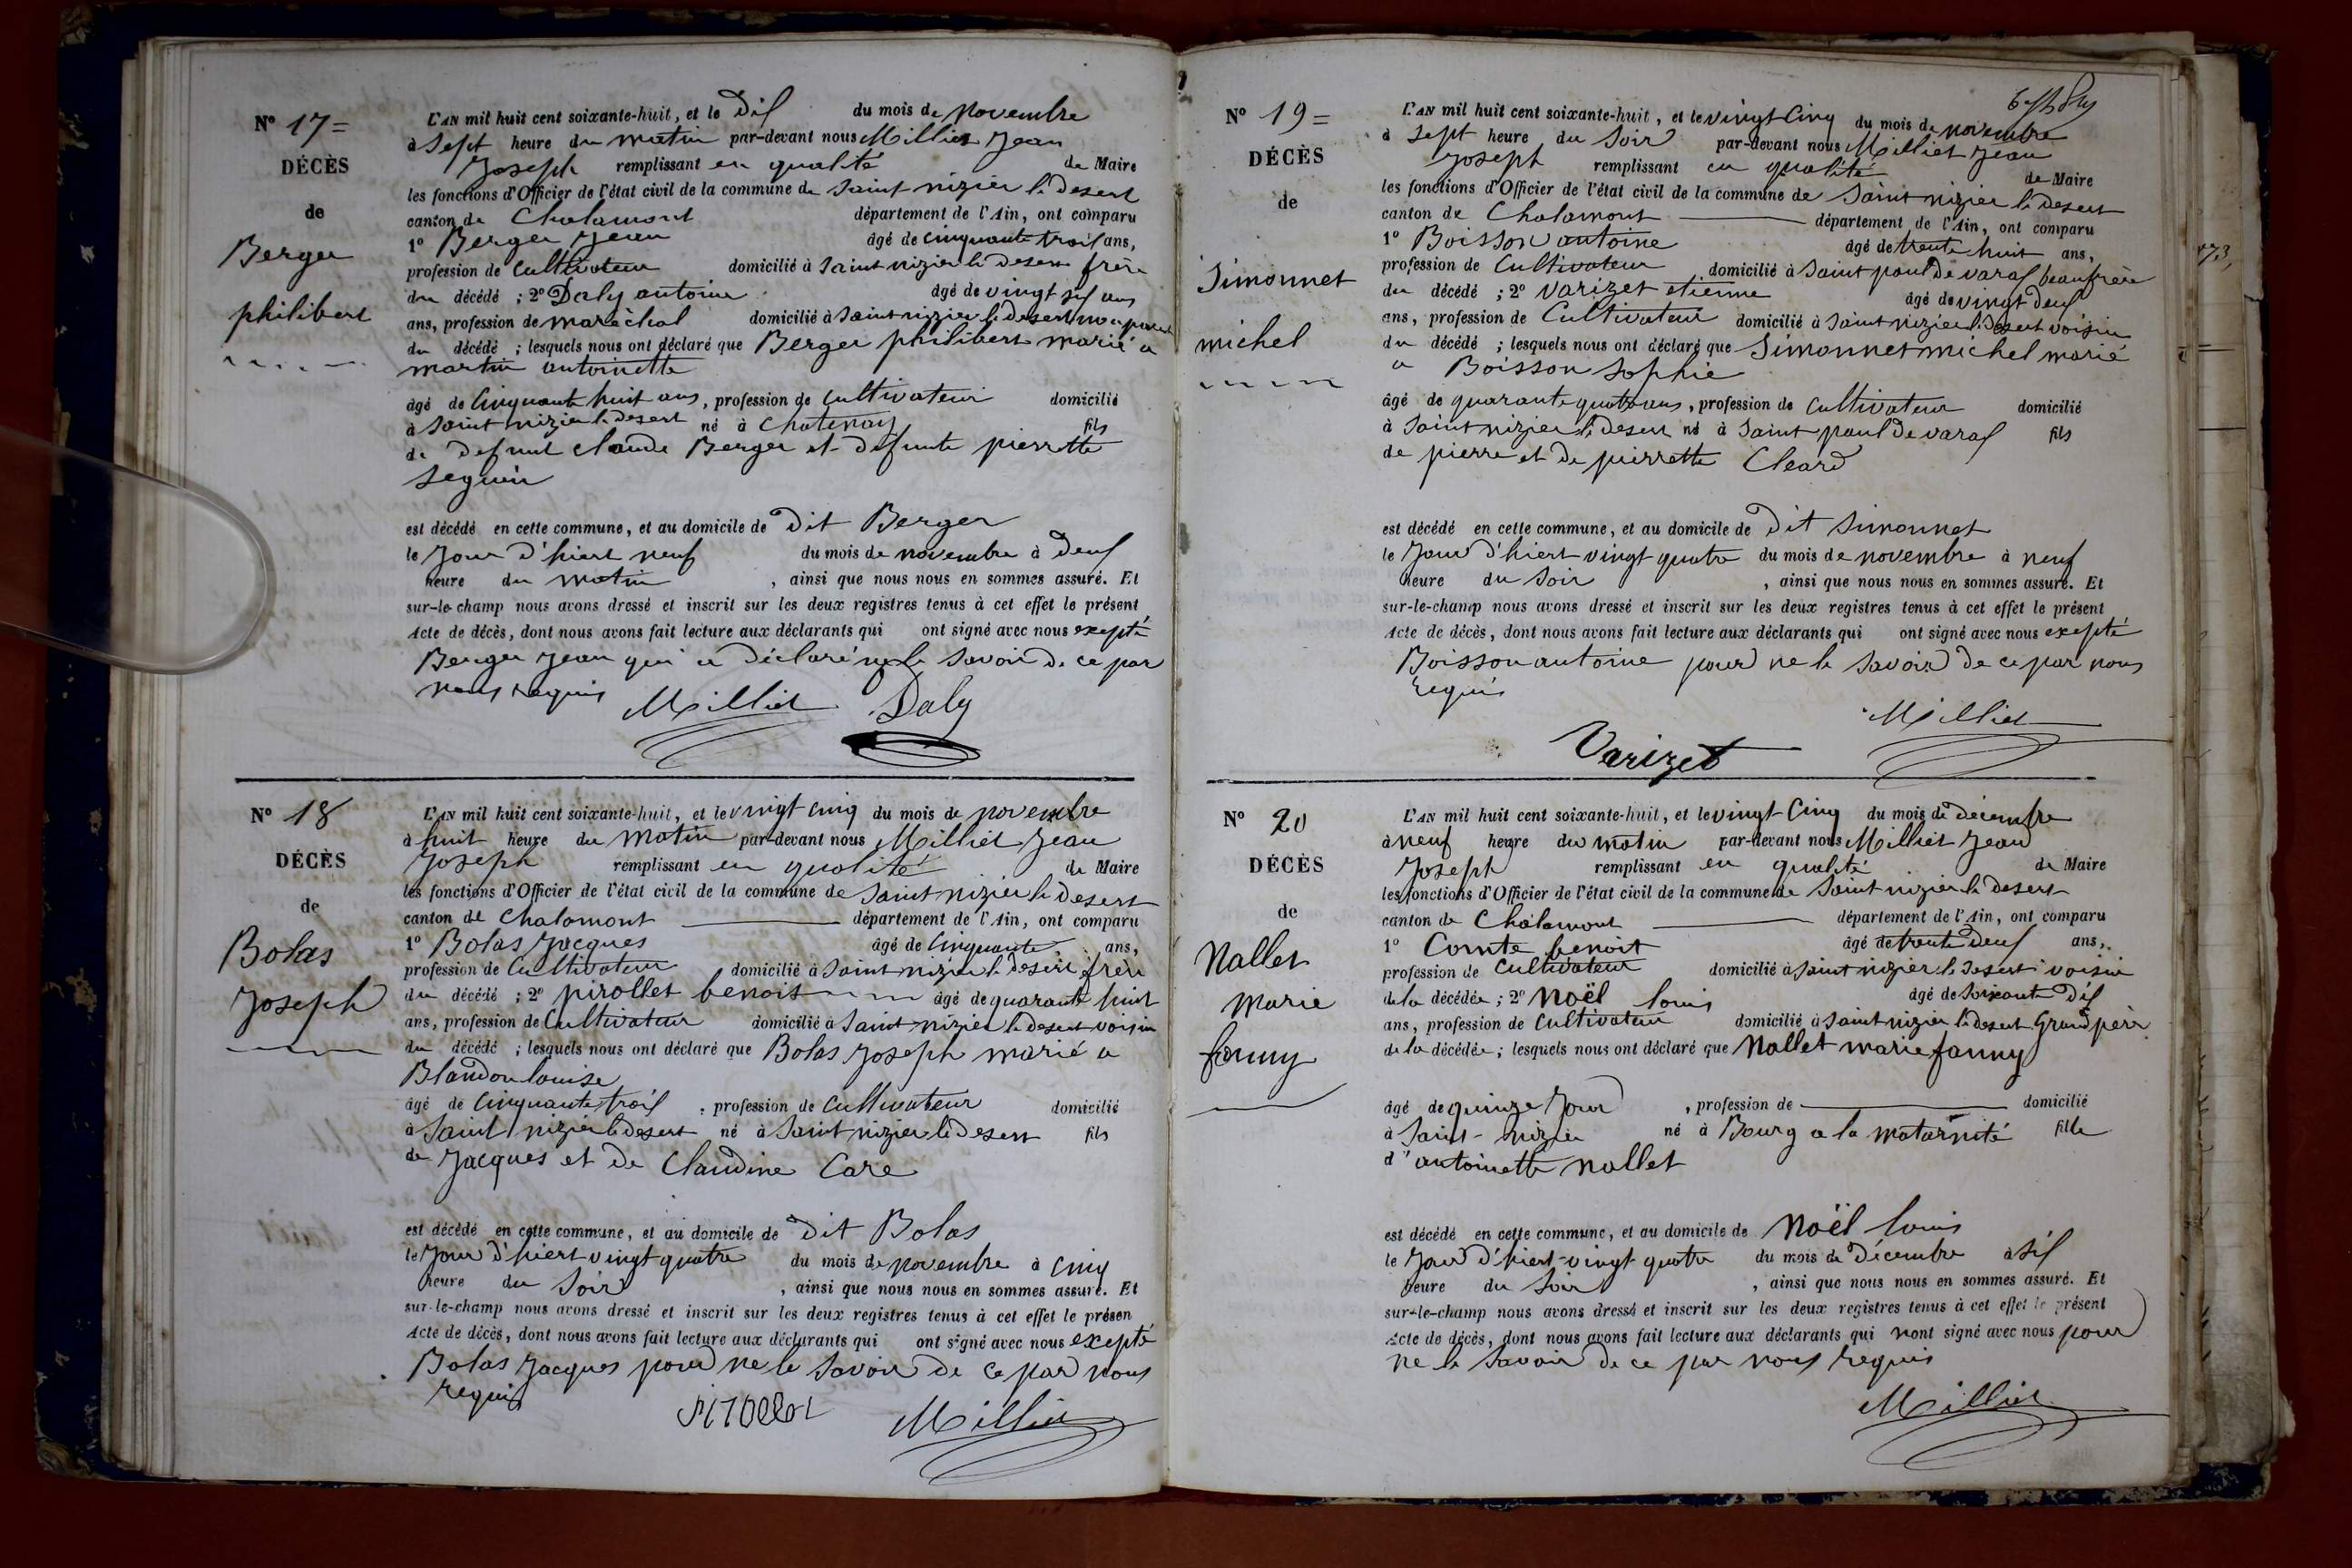 N° 17 =
DÉCÈS
de
Berger
philibert
L'AN mil huit cent soixante-huit, et le Dix du mois de Novembre
à Sept heure du matin par-devant nous Milliet Jean
Joseph remplissant en qualité de Maire
les fonctions d'Officier de l'état civil de la commune de Saint nizier le Desert
canton de Chalamont département de l'Ain, ont comparu
1° Berger Jean âgé de cinquante trois ans,
profession de Cultivateur domicilié à Saint nizier le Desert frère
du décédé ; 2° Daly antoine âgé de vingt six ans
ans, profession de maréchal domicilié à Saint nizier le Desert non parent
du décédé ; lesquels nous ont déclaré que Berger philibert marié a
martin antoinette
âgé de Cinquante huit ans, profession de Cultivateur domicilié
à Saint nizier le desert né à Chatenay fils
de Defunt claude Berger et defunte pierrette
Seguin
est décédé en cette commune, et au domicile de Dit Berger
le Jour d'hiert neuf du mois de novembre à Deux
heure du matin, ainsi que nous nous en sommes assuré. Et
sur-le-champ nous avons dressé et inscrit sur les deux registres tenus à cet effet le présent
Acte de décès, dont nous avons fait lecture aux déclarants qui ont signé avec nous exepté
Berger Jean qui a Déclaré ne le Savoir de ce par
nous requis Milliet Daly
N° 18
DÉCÈS
de
Bolas
Joseph
L'AN mil huit cent soixante-huit, et le vingt cinq du mois de novembre
à huit heure du Matin par-devant nous Milliet Jean
Joseph remplissant en qualité de Maire
les fonctions d'Officier de l'état civil de la commune de Saint nizier le Desert
canton de Chalamont département de l'Ain, ont comparu
1° Bolas Jacques âgé de Cinquante ans,
profession de Cultivateur domicilié à Saint nizier le Desert frère
du décédé ; 2° pirollet benoit âgé de quarante huit
ans, profession de Cultivateur domicilié à Saint nizier le desert voisin
du décédé ; lesquels nous ont déclaré que Bolas Joseph marié a
Blandon louise
âgé de Cinquante trois, profession de Cultivateur domicilié
à Saint nizier le desert né à Saint nizier le Desert fils
de Jacques et de Claudine Care
est décédé en cette commune, et au domicile de Dit Bolas
le Jour d'hiert vingt quatre du mois de novembre à cinq
heure du Soir, ainsi que nous nous en sommes assuré. Et
sur-le-champ nous avons dressé et inscrit sur les deux registres tenus à cet effet le présen
Acte de décès, dont nous avons fait lecture aux déclarants qui ont signé avec nous excepté
Bolas Jacques pour ne le Savoir de ce par nous
requis
Pirollet Milliet
N° 19 =
DÉCÈS
de
Simonnet
michel
L'AN mil huit cent soixante-huit, et le vingt Cinq du mois de novembre
à Sept heure du Soir par-devant nous Milliet Jean
Joseph remplissant en qualité de Maire
les fonctions d'Officier de l'état civil de la commune de Saint nizier le Desert
canton de Chalamont département de l'Ain, ont comparu
1° Boisson antoine âgé de trente huit ans,
profession de Cultivateur domicilié à Saint paul de varax beaufrère
du décédé ; 2° Varizet etienne âgé de vingt deux
ans, profession de Cultivateur domicilié à Saint nizier le Desert voisin
du décédé ; lesquels nous ont déclaré que Simonnet michel marié
a Boisson Sophie
âgé de quarante quatre ans, profession de Cultivateur domicilié
à Saint nizier le desert né à Saint paul de varax fils
de pierre et de pierrette Cleard
est décédé en cette commune, et au domicile de Dit Simonnet
le Jour d'hiert vingt quatre du mois de novembre à neuf
heure du Soir, ainsi que nous nous en sommes assuré. Et
sur-le-champ nous avons dressé et inscrit sur les deux registres tenus à cet effet le présent
Acte de décès, dont nous avons fait lecture aux déclarants qui ont signé avec nous exepté
Boisson antoine pour ne le Savoir de ce par nous
requis
Milliet
Varizet
N° 20
DÉCÈS
de
Nallet
Marie
fanny
L'AN mil huit cent soixante-huit, et le vingt Cinq du mois de décembre
à neuf heure du matin par-devant nous Milliet Jean
Joseph remplissant en qualité de Maire
les fonctions d'Officier de l'état civil de la commune de Saint nizier le Desert
canton de Chalamont département de l'Ain, ont comparu
1° Comte benoit âgé de trente Deux ans,
profession de Cultivateur domicilié à Saint nizier le Desert voisin
de la décédée ; 2° Noël louis âgé de Soixante Dix
ans, profession de Cultivateur domicilié à Saint nizier le desert Grand père
de la décédée ; lesquels nous ont déclaré que Nallet marie fanny
âgé de quinze Jour, profession de domicilié
à Saint-nizier né à Bourg a la maternité fille
d'antoinette nallet
est décédé en cette commune, et au domicile de Noël louis
le Jour d'hiert vingt quatre du mois de Décembre à Six
heure du Soir, ainsi que nous nous en sommes assuré. Et
sur-le-champ nous avons dressé et inscrit sur les deux registres tenus à cet effet le présent
Acte de décès, dont nous avons fait lecture aux déclarants qui nont signé avec nous pour
ne le Savoir de ce par nous requis
Milliet